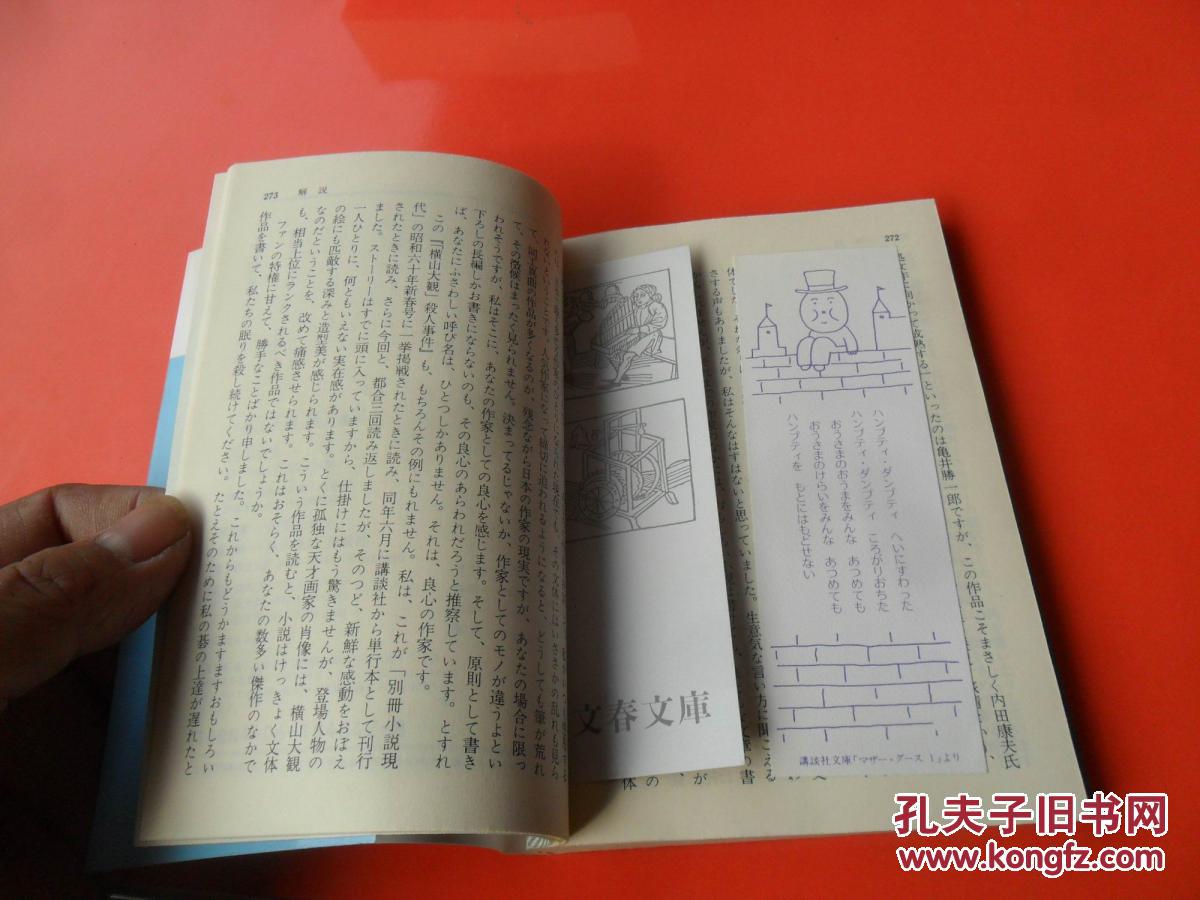 272
処女作に向かって成熟する、といったのは亀井勝一郎ですが、この作品こそまさしく内田康夫氏
さする声もありましたが、私はそんなはずはないと思っていました。生意気な言い方に聞こえる
ハンプティ・ダンプティ へいにすわった
ハンプティ・ダンプティ ころがりおちた
おうさまのおうまをみんな あつめても
おうさまのけらいをみんな あつめても
ハンプティを もとにはもどせない
講談社文庫「マザー・グース 1」より
文春文庫
273 解説
て、同工異曲の作品が多くなるのが、残念ながら日本の作家の現実ですが、あなたの場合に限っ
て、その徴候はまったく見られません。決まってるじゃないか、作家としてのモノが違うよとい
われそうですが、私はそこに、あなたの作家としての良心を感じます。そして、原則として書き
下ろしの長編しかお書きにならないのも、その良心のあらわれだろうと推察しています。とすれ
ば、あなたにふさわしい呼び名は、ひとつしかありません。それは、良心の作家です。
この『「横山大観」殺人事件』も、もちろんその例にもれません。私は、これが「別冊小説現
代」の昭和六十年新春号に一挙掲載されたときに読み、同年六月に講談社から単行本として刊行
されたときに読み、さらに今回と、都合三回読み返しましたが、そのつど、新鮮な感動をおぼえ
ました。ストーリーはすでに頭に入っていますから、仕掛けにはもう驚きませんが、登場人物の
一人ひとりに、何ともいえない実在感があります。とくに孤独な天才画家の肖像には、横山大観
の絵にも匹敵する深みと造型美が感じられます。こういう作品を読むと、小説はけっきょく文体
なのだということを、改めて痛感させられます。これはおそらく、あなたの数多い傑作のなかで
も、相当上位にランクされるべき作品ではないでしょうか。
ファンの特権に甘えて、勝手なことばかり申しました。これからもどうかますますおもしろい
作品を書いて、私たちの眠りを殺し続けてください。たとえそのために私の碁の上達が遅れたと
孔夫子旧书网
www.kongfz.com